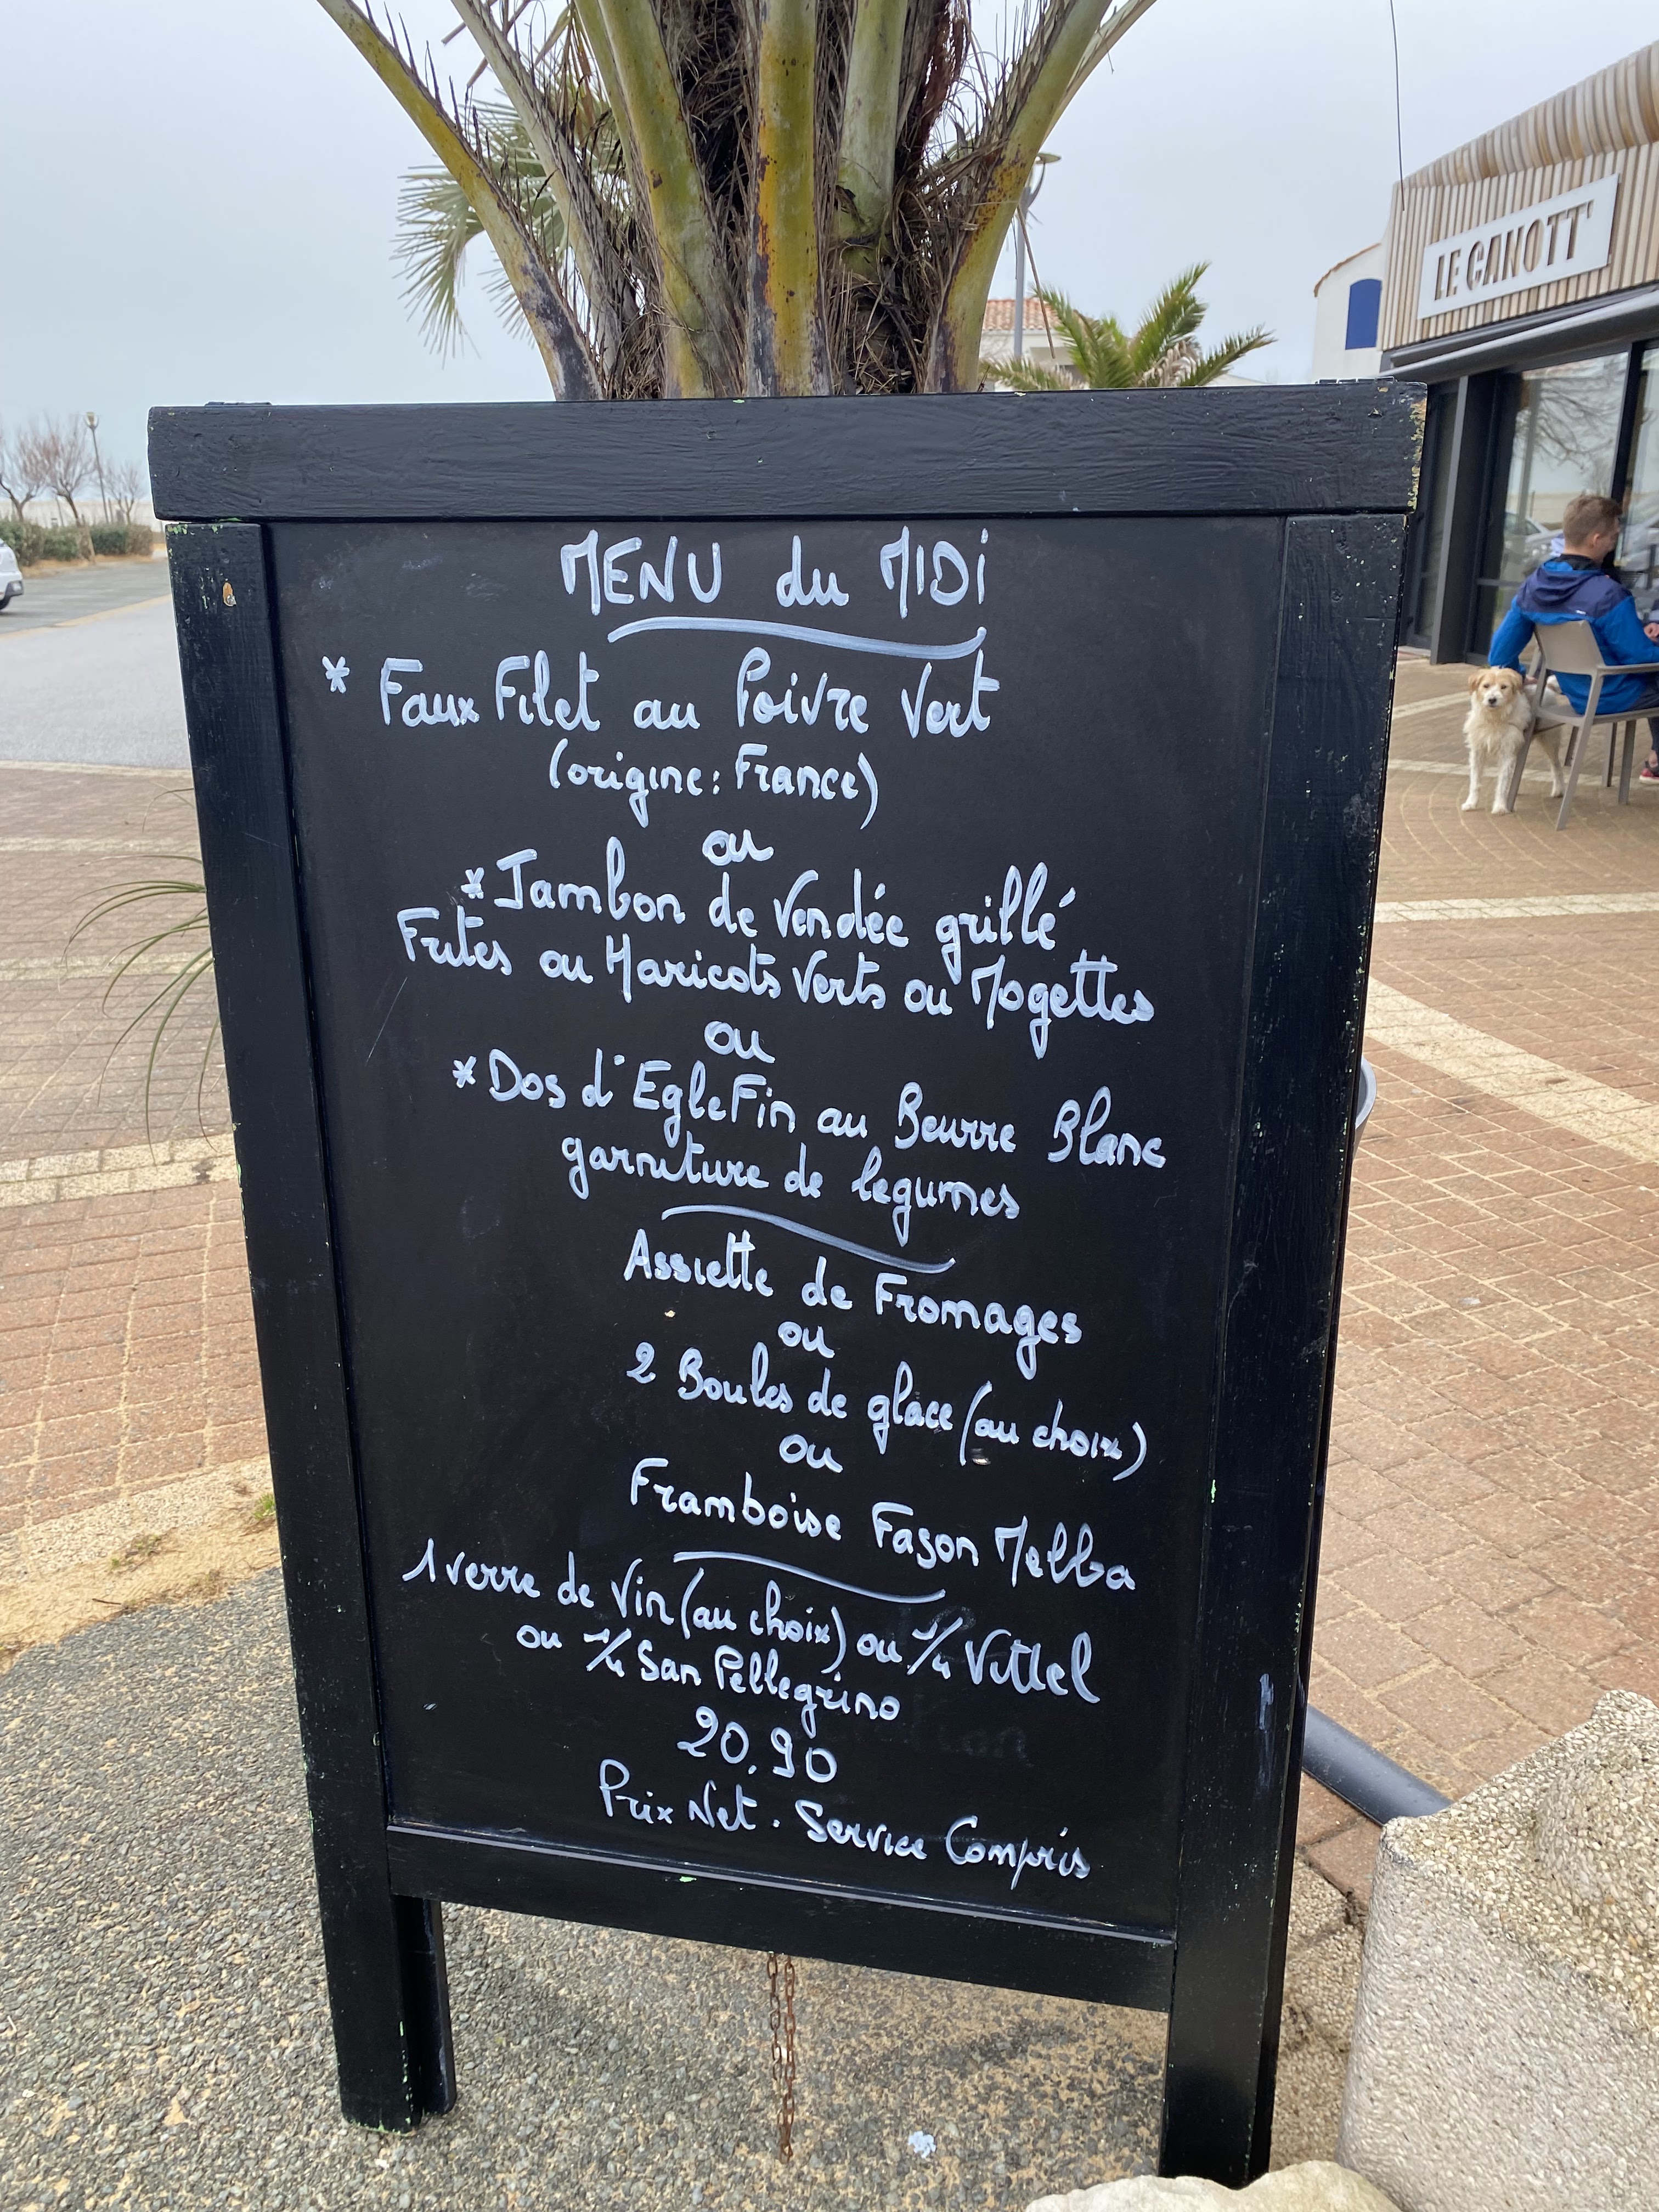 LE CANOTT'
MENU du MIDi
* Faux Filet au Poivre Vert
(origine : France)
ou
* Jambon de Vendée grillé
Frites ou Haricots Verts ou Mogettes
ou
* Dos d'EgleFin au Beurre Blanc
garniture de legumes
Assiette de Fromages
ou
2 Boules de glace (au choix)
ou
Framboise Façon Melba
1 verre de Vin (au choix) ou 1/4 Vittel
ou 1/4 San Pellegrino
20,90
Prix Net . Service Compris